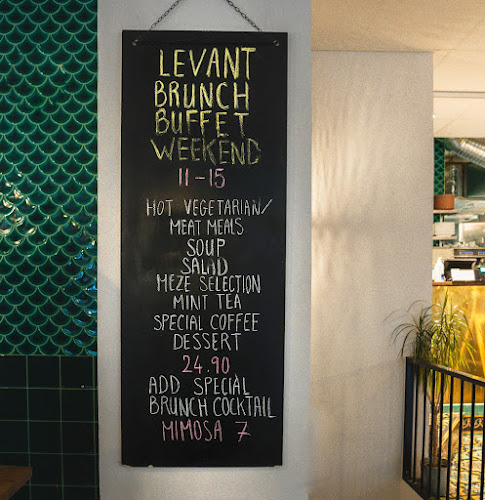 LEVANT
BRUNCH
BUFFET
WEEKEND
11-15
HOT VEGETARIAN/
MEAT MEALS
SOUP
SALAD
MEZE SELECTION
MINT TEA
SPECIAL COFFEE
DESSERT
24.90
ADD SPECIAL
BRUNCH COCKTAIL
MIMOSA 7